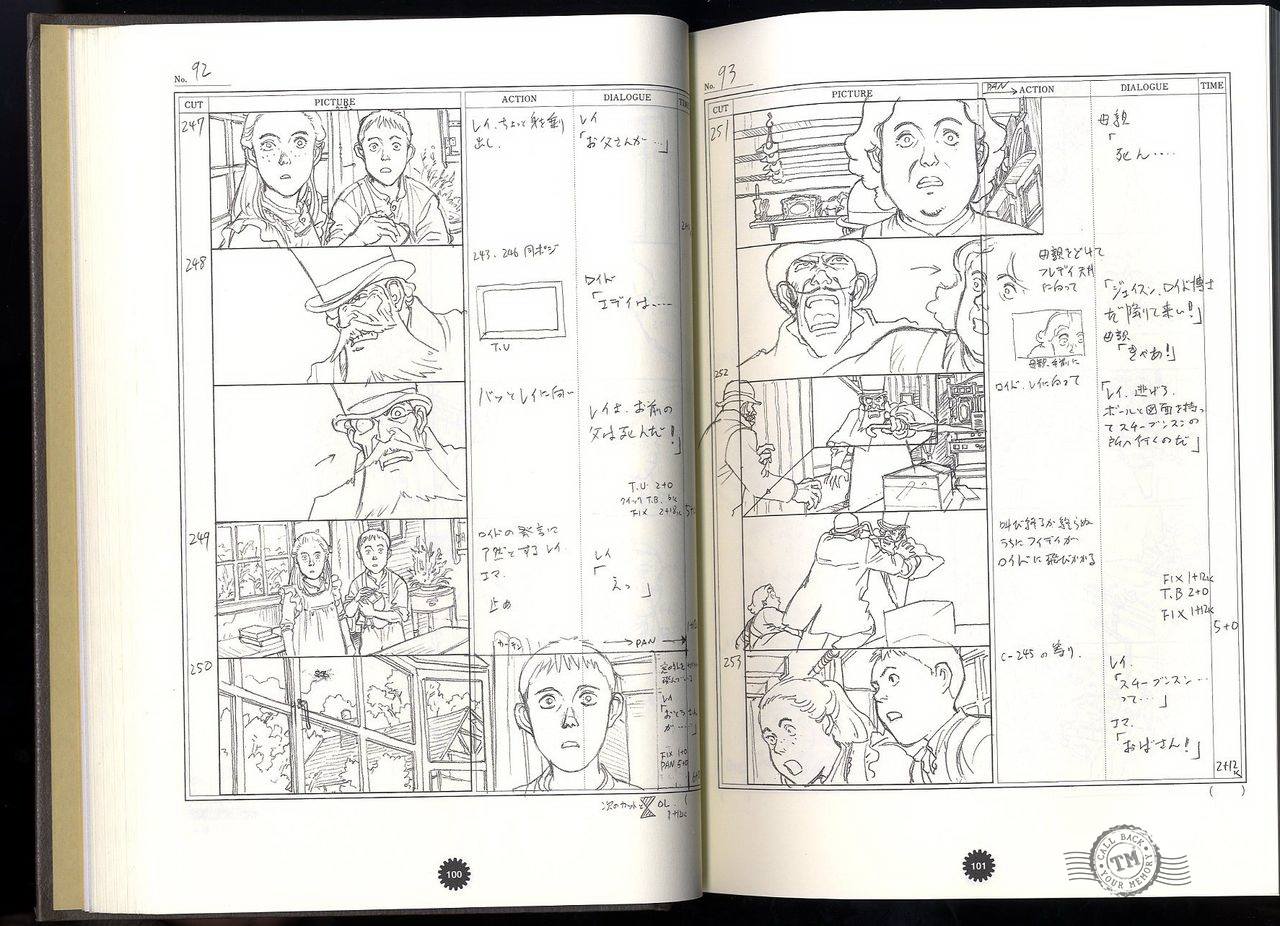 No. 92
CUT
PICTURE
ACTION
DIALOGUE
247
レイ、ちょっと身を乗り
出し、
レイ
「お父さんが…」
248
243、246 同ポジ
T.U
ロイド
「エディは……
バッとレイに向い
レイよ、お前の
父は死んだ!」
T.U 2+0
クイックT.B. 6k
FIX 2+18k
249
ロイドの発言に
ア然とするレイ、
エマ。
止め
レイ
「えっ」
250
カーテン
PAN
レイ
「おとうさん
が……」
FIX 1+0
PAN 5+0
次のカットと OL
1+12k
100
No. 93
CUT
PICTURE
PAN
ACTION
DIALOGUE
TIME
251
母親
「
死ん……
母親をどけて
フレディ
に向って
「ジェイスン、ロイド博士
だ 降りて来い!」
母親
「きゃあ!」
252
ロイド、レイに向って
「レイ、逃げろ、
ボールと図面を持っ
てスチーブンスンの
所へ行くのだ」
叫び終るか終らぬ
うちに
ロイドに飛びかかる
FIX 1+12k
T.B 2+0
FIX 1+12k
5+0
253
C-245の寄り、
レイ、
「スチーブンスン…
って…」
エマ、
「おばさん!」
2+12k
( )
101
CALL BACK
TM
YOUR MEMORY